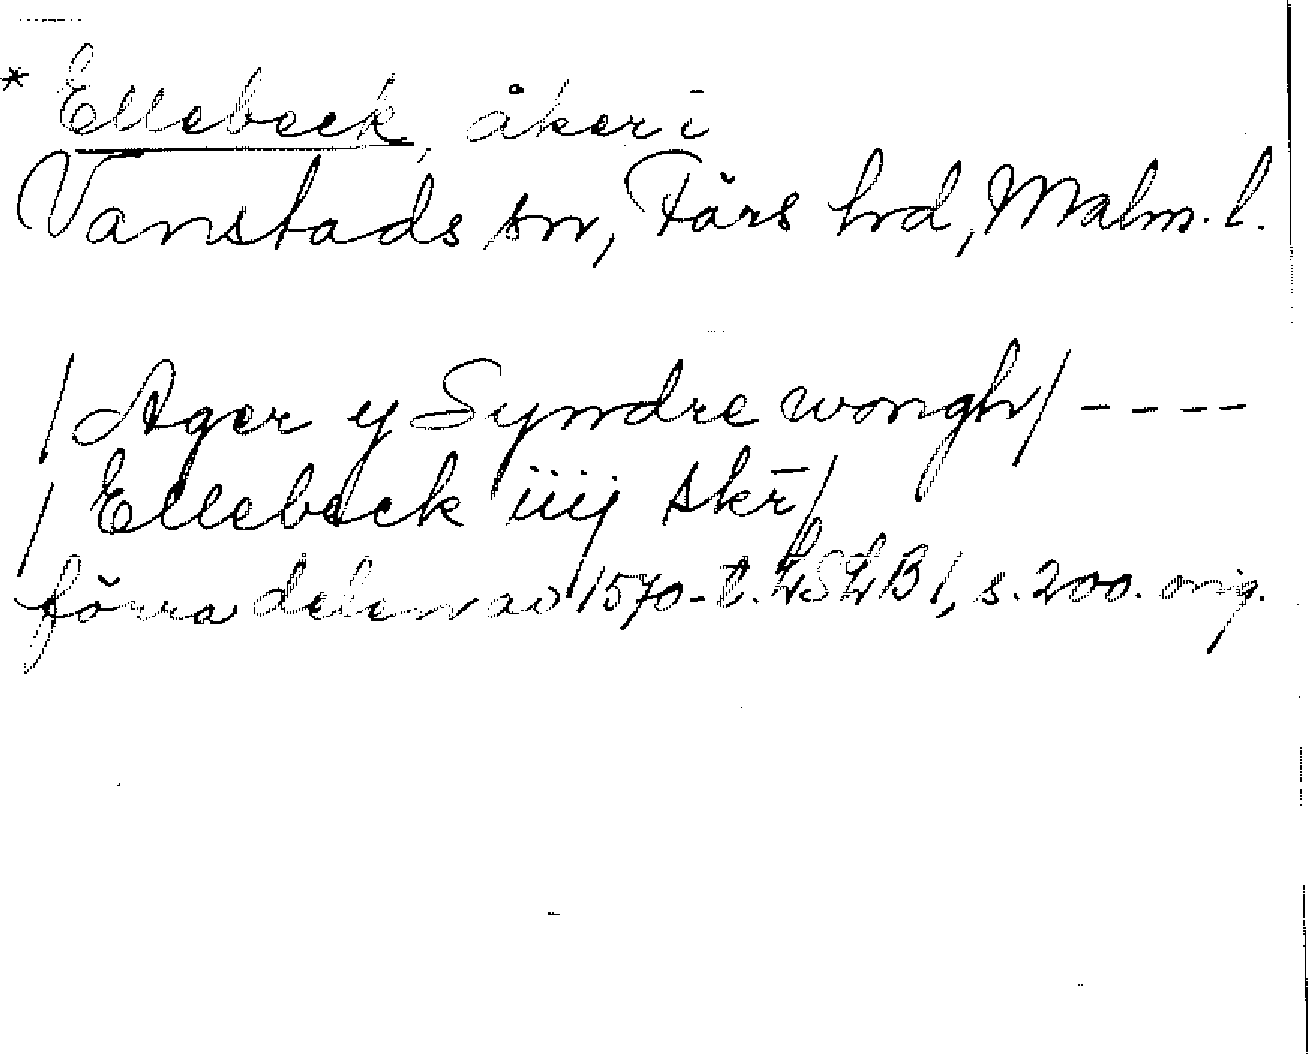 * Ellebeck, åker i
Vanstads sn, Färs hrd, Malm. l.
/Ager y Syndre wongh/ ----
/Ellebeck iiij skr̄/
förra delen av 1570-t. LSLB 1, s. 200. orig.